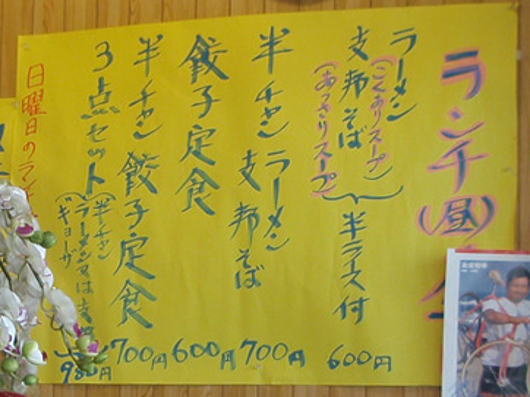 ランチ(昼)
ラーメン
(こってりスープ)
支那そば
(あっさりスープ)
半ライス付
600円
半チャン
ラーメン
支那そば
700円
餃子定食
600円
半チャン 餃子定食
700円
3点セット
(半チャン
ラーメン又は支
ギョーザ
980円
日曜日のラン